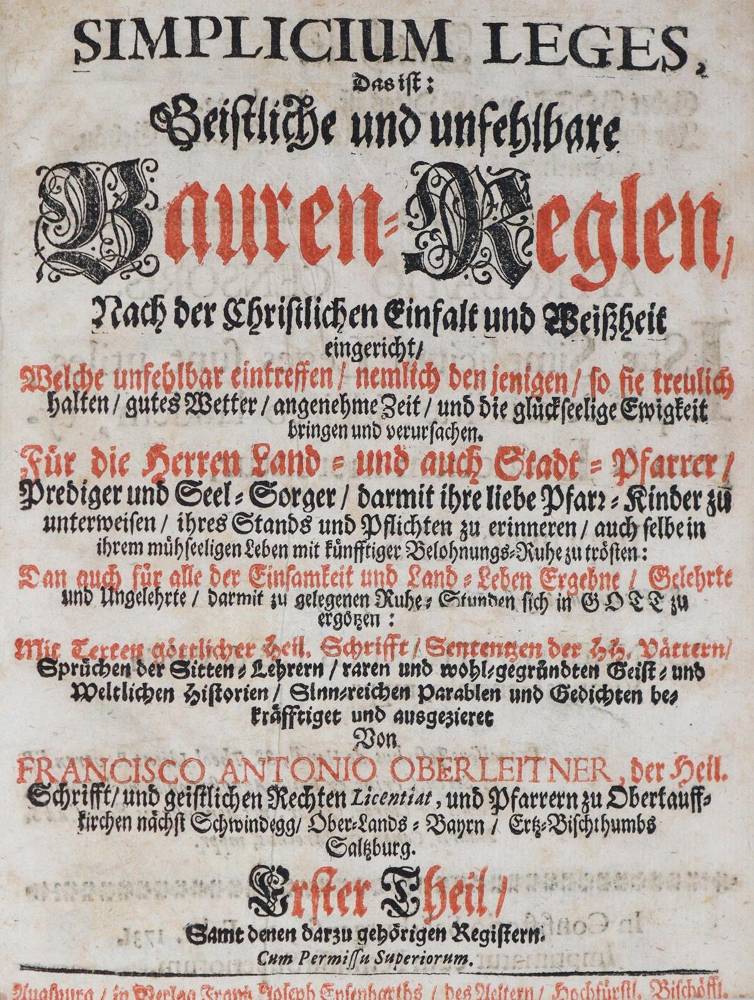 SIMPLICIUM LEGES,
Das ist:
Geistliche und unfehlbare
Bauren-Reglen,
Nach der Christlichen Einfalt und Weißheit
eingericht/
Welche unfehlbar eintreffen / nemlich den jenigen / so sie treulich
halten / gutes Wetter / angenehme Zeit / und die glückseelige Ewigkeit
bringen und verursachen.
Für die Herren Land- und auch Stadt-Pfarrer/
Prediger und Seel-Sorger / darmit ihre liebe Pfarr-Kinder zu
unterweisen / ihres Stands und Pflichten zu erinneren / auch selbe in
ihrem mühseeligen Leben mit künfftiger Belohnungs-Ruhe zu trösten:
Dan auch für alle der Einsamkeit und Land-Leben Ergebne / Gelehrte
und Ungelehrte / darmit zu gelegenen Ruhe-Stunden sich in GOTT zu
ergötzen:
Mit Texten göttlicher Heil. Schrifft / Sententzen der HH. Vättern/
Sprüchen der Sitten-Lehrern / raren und wohl-gegründten Geist- und
Weltlichen Historien / Sinn-reichen Parablen und Gedichten be-
kräfftiget und ausgezieret
Von
FRANCISCO ANTONIO OBERLEITNER, der Heil.
Schrifft/ und geistlichen Rechten Licentiat, und Pfarrern zu Obertauff-
kirchen nächst Schwindegg/ Ober-Lands-Bayrn / Ertz-Bischthumbs
Saltzburg.
Erster Theil/
Samt denen darzu gehörigen Registern.
Cum Permissu Superiorum.
Augspurg / in Verlag Frantz Joseph Epsenbarths / des Aeltern / Hochfürstl. Bischöffl.